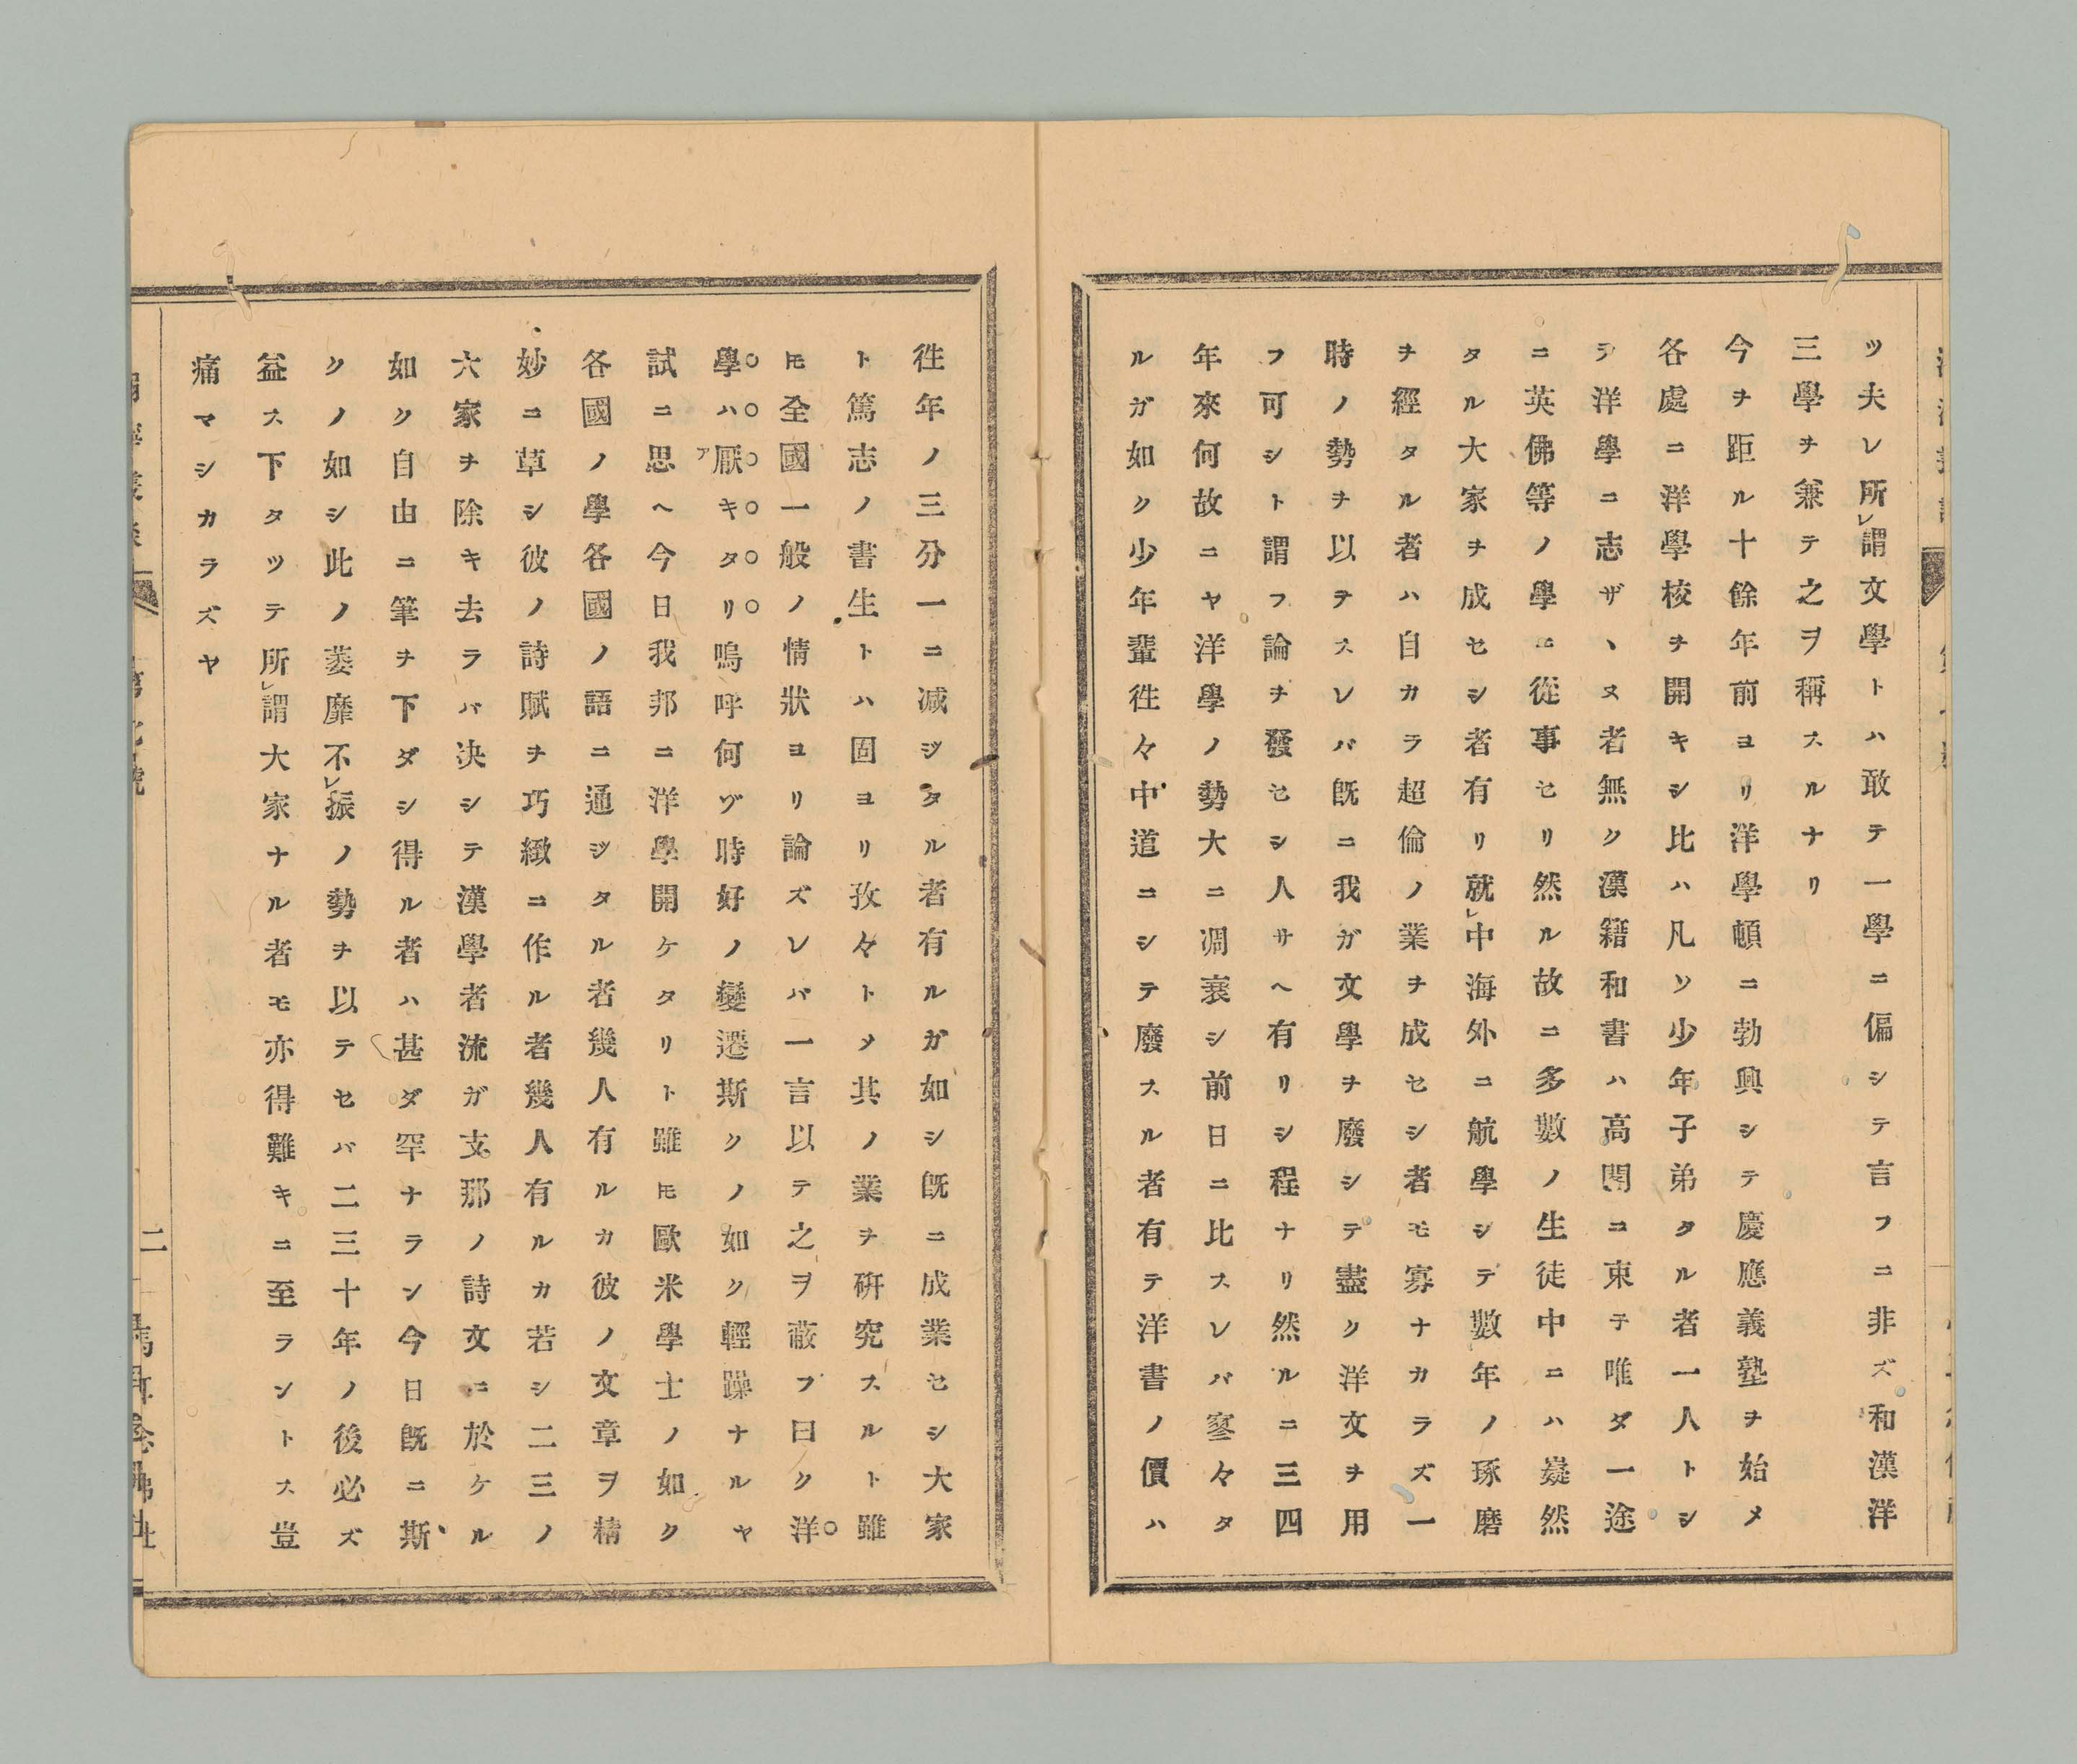 ツ夫レ所レ謂文學トハ敢テ一學ニ偏シテ言フニ非ズ和漢洋
三學ヲ兼テ之ヲ稱スルナリ
今ヲ距ル十餘年前ヨリ洋學頓ニ勃興シテ慶應義塾ヲ始メ
各處ニ洋學校ヲ開キシ比ハ凡ソ少年子弟タル者一人トシ
テ洋學ニ志ザヽヌ者無ク漢籍和書ハ高閣ニ束テ唯ダ一途
ニ英佛等ノ學ニ從事セリ然ル故ニ多數ノ生徒中ニハ嶷然
タル大家ヲ成セシ者有リ就レ中海外ニ航學シテ數年ノ琢磨
ヲ經タル者ハ自カラ超倫ノ業ヲ成セシ者モ寡ナカラズ一
時ノ勢ヲ以テスレバ既ニ我ガ文學ヲ廢シテ盡ク洋文ヲ用
フ可シト謂フ論ヲ發セシ人サヘ有リシ程ナリ然ルニ三四
年來何故ニヤ洋學ノ勢大ニ凋衰シ前日ニ比スレバ寥々タ
ルガ如ク少年輩徃々中道ニシテ廢スル者有テ洋書ノ價ハ
徃年ノ三分一ニ減ジタル者有ルガ如シ既ニ成業セシ大家
ト篤志ノ書生トハ固ヨリ孜々トメ其ノ業ヲ研究スルト雖
モ全國一般ノ情狀ヨリ論ズレバ一言以テ之ヲ蔽フ曰ク洋
學ハ厭キタリ嗚呼何ヅ時好ノ變遷斯クノ如ク輕躁ナルヤ
試ニ思ヘ今日我邦ニ洋學開ケタリト雖モ歐米學士ノ如ク
各國ノ學各國ノ語ニ通ジタル者幾人有ルカ彼ノ文章ヲ精
妙ニ草シ彼ノ詩賦ヲ巧緻ニ作ル者幾人有ルカ若シ二三ノ
六家ヲ除キ去ラバ決シテ漢學者流ガ支那ノ詩文ニ於ケル
如ク自由ニ筆ヲ下ダシ得ル者ハ甚ダ罕ナラン今日既ニ斯
クノ如シ此ノ萎靡不レ振ノ勢ヲ以テセバ二三十年ノ後必ズ
益ス下タツテ所レ謂大家ナル者モ亦得難キニ至ラントス豈
痛マシカラズヤ
二